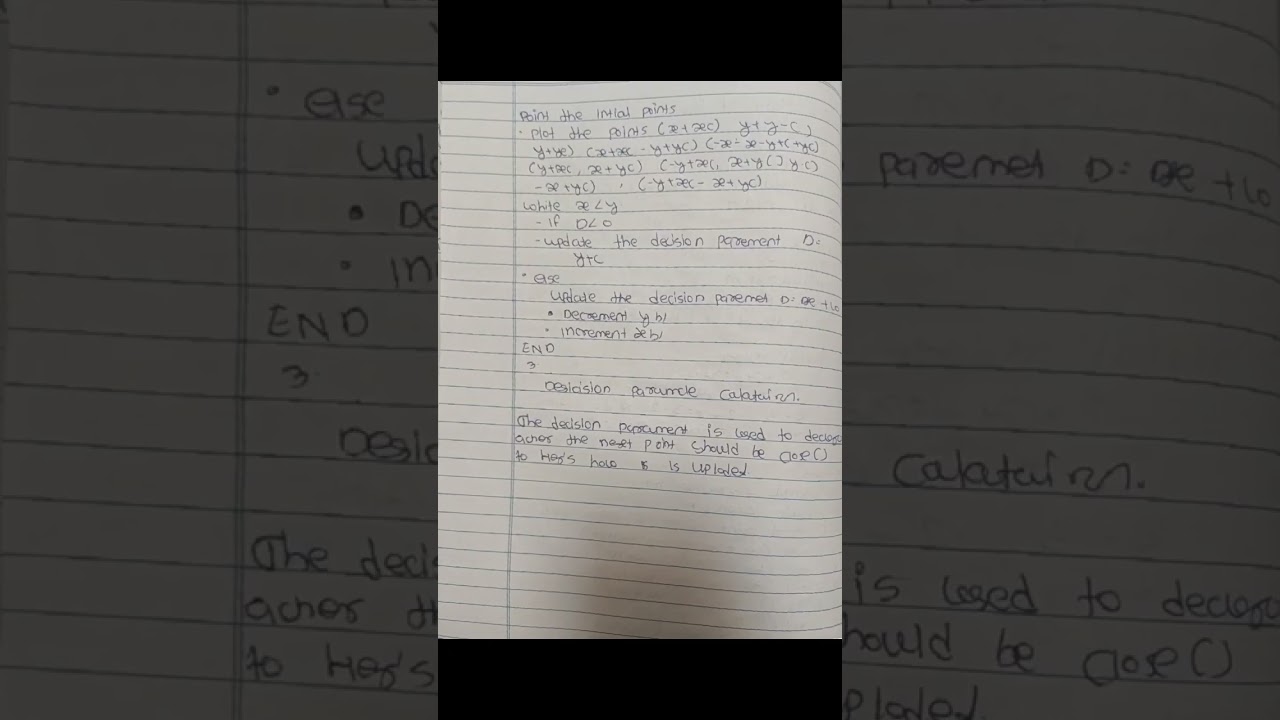 Point the intial points
• Plot the points (x+xc) y+y-c)
y+yc) (x+xc - y+yc) (-x-x-y+c+yc)
(y+xc, x+yc) (-y+xc, x+y() y-c)
-x+yc) , (-y+xc - x+yc)
while x<y
- if D<0
- update the decision parement D:
y+c
• else
update the decision paremet D: x +
• Decrement y by
• increment x by
END
}
Desicision paramcle Calatairn.
The decision parament is used to
the next point should be close()
to is uploded